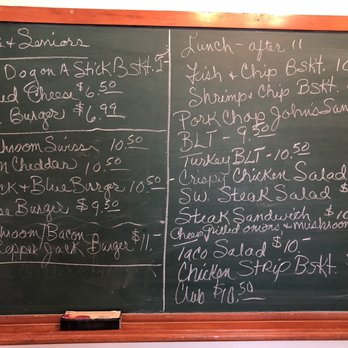 & Seniors
Dog on A Stick Bskt. $
Cheese $6.50
Burger $6.99
Swiss 10.50
Cheddar 10.50
& Blue Burger 10.50
Burger $9.50
Bacon
Pepper Jack Burger $11.-
Lunch - after 11
Fish & Chip Bskt. 10
Shrimp & Chip Bskt.
Pork Chop John's San
BLT - 9.50
Turkey BLT - 10.50
Crispy Chicken Salad
S.W. Steak Salad $
Steak Sandwich $10
Cheese, grilled onions, & mushroom
Taco Salad $10.-
Chicken Strip Bskt.
Club $10.50